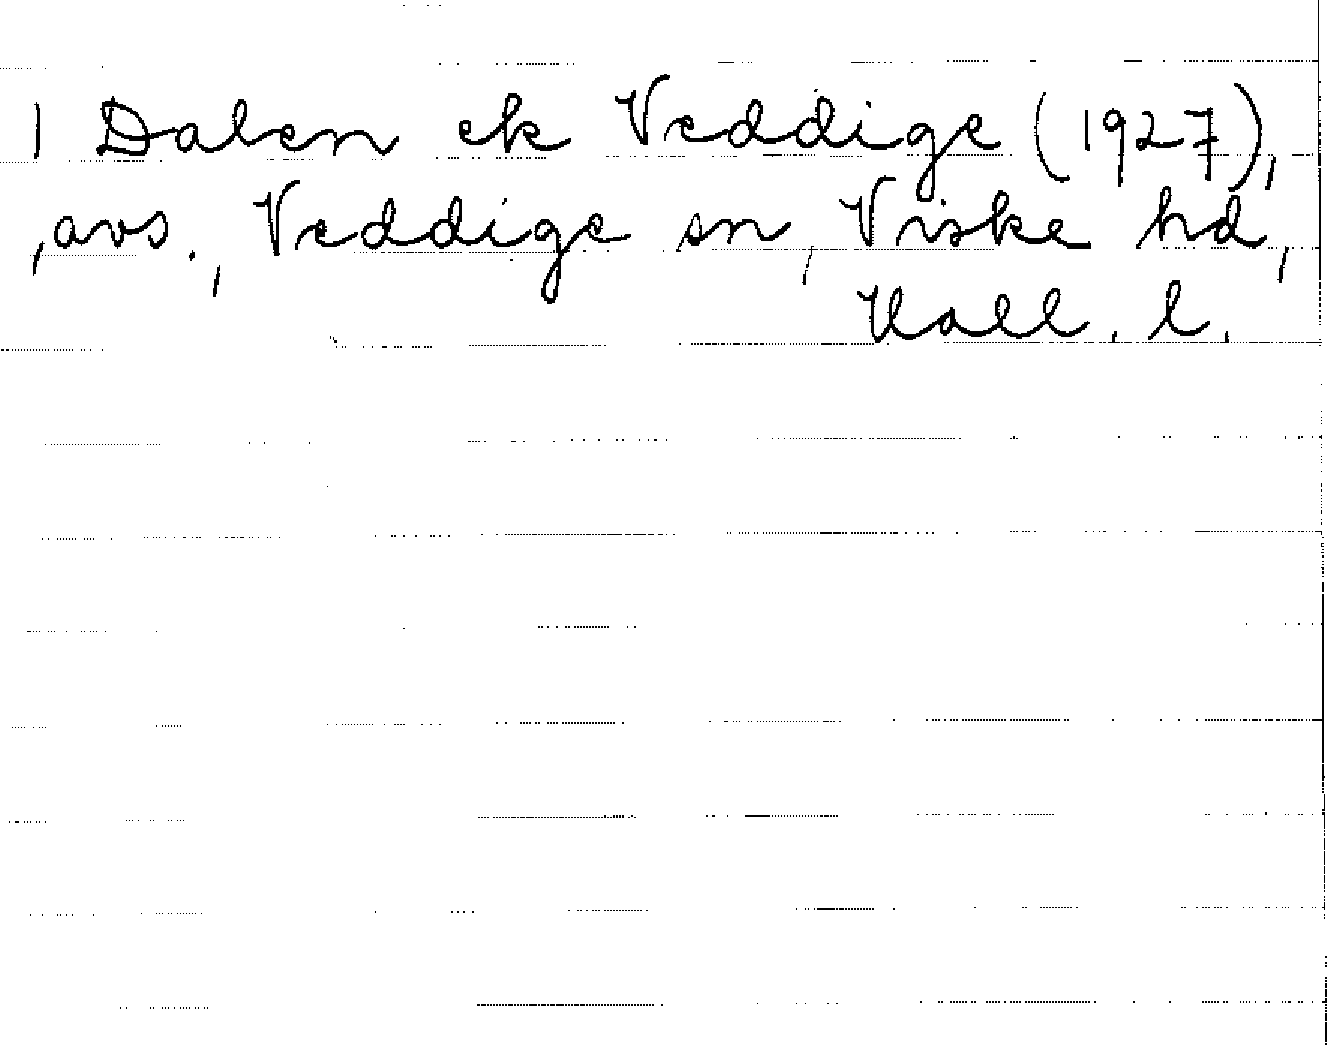 1 Dalen ek Veddige (1927),
,avs., Veddige sn, Viske hd,
Hall. l.